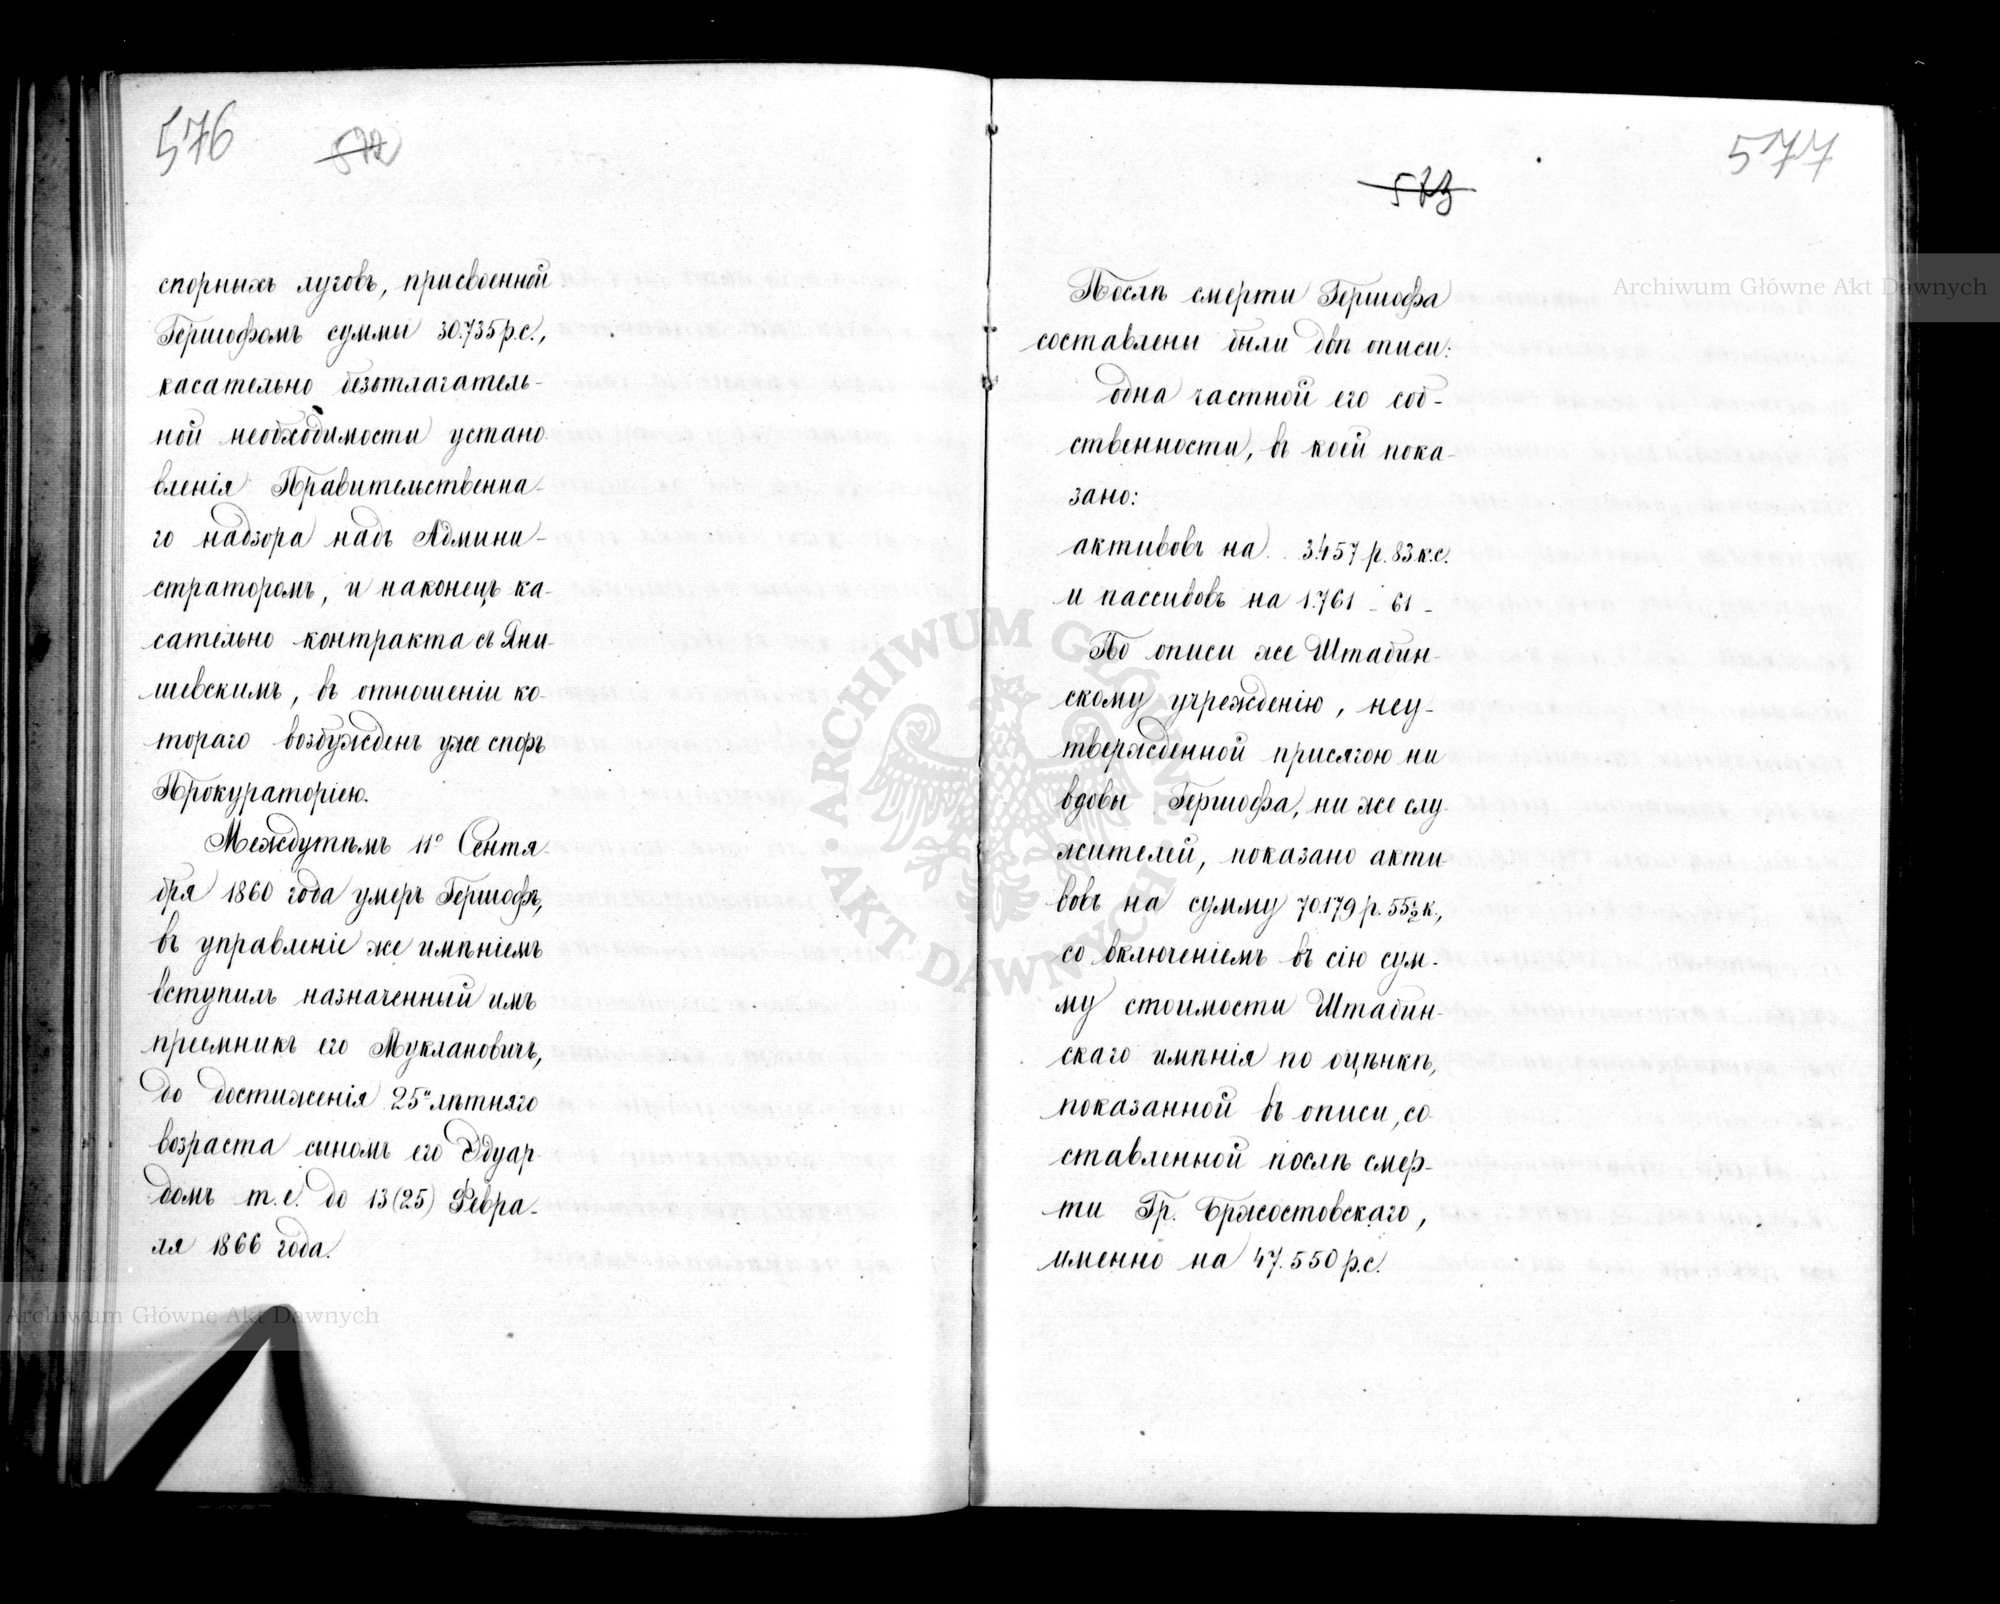 576 572
спорныхъ луговъ, присвоенной
Гершофомъ суммы 30.735 р.с.,
касательно безотлагатель-
ной необходимости устано
вленія Правительственна-
го надзора надъ Админи-
страторомъ, и наконецъ ка-
сательно контракта съ Яни-
шевскимъ, въ отношеніи ко-
тораго возбужденъ уже споръ
Прокураторіею.
Междутѣмъ 11º Сентя-
бря 1860 года умеръ Гершофъ,
въ управленіе же имѣніемъ
вступилъ назначенный имъ
преемникъ его Муклановичъ,
до достиженія 25и лѣтняго
возраста сыномъ его Эдуар-
домъ т.е. до 13 (25) Февра-
ля 1866 года.
577
573
Послѣ смерти Гершофа
составлены были двѣ описи:
одна частной его соб-
ственности, въ коей пока-
зано:
активовъ на 3.457 р. 83 к.с.
и пассивовъ на 1.761 - 61 -
По описи же Штабин-
скому учрежденію, неу-
твержденной присягою ни
вдовы Гершофа, ни же слу-
жителей, показано акти-
вовъ на сумму 70.179 р. 55½ к.,
со включеніемъ въ сію сум-
му стоимости Штабин-
скаго имѣнія по оцѣнкѣ,
показанной въ описи, со
ставленной послѣ смер-
ти Гр. Бржостовскаго,
именно на 47.550 р.с.
Archiwum Główne Akt Dawnych
Archiwum Główne Akt Dawnych
ARCHIWUM GŁÓWNE AKT DAWNYCH